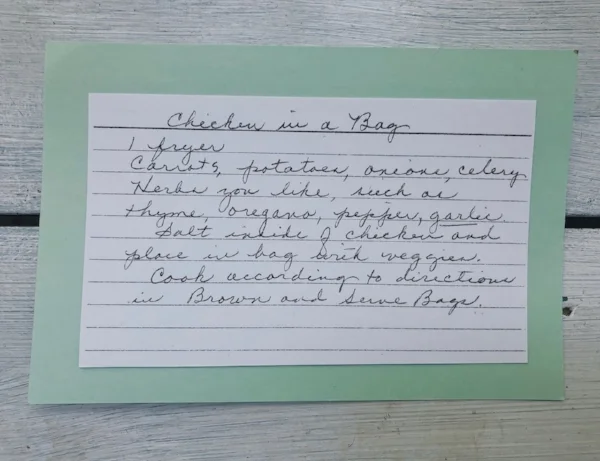 Chicken in a Bag
1 fryer
Carrots, potatoes, onions, celery
Herbs you like, such as
thyme, oregano, pepper, garlic.
Salt inside of chicken and
place in bag with veggies.
Cook according to directions
in Brown and Serve Bags.